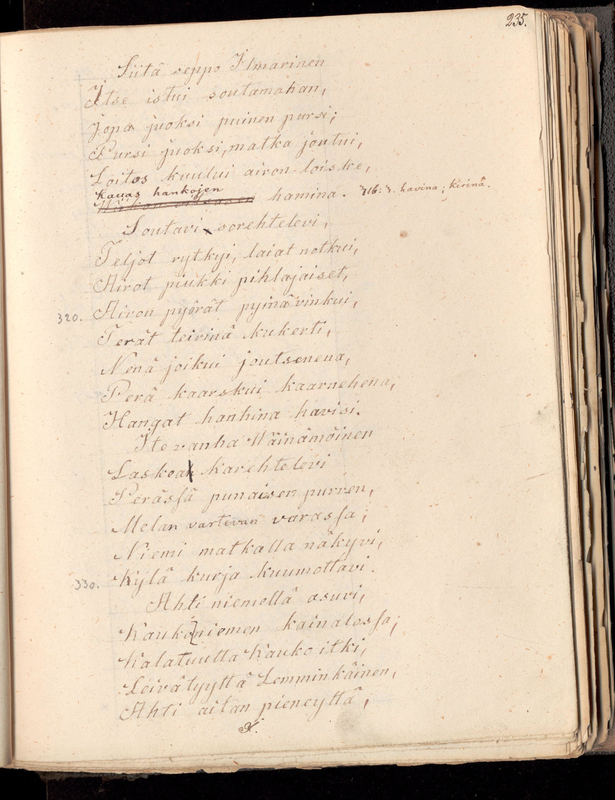 235.
Siitä seppo Ilmarinen
Itse istui soutamahan,
Jopa juoksi puinen pursi;
Pursi juoksi, matka joutui,
Loitos kuului airon loiske,
Kauas hankojen
hamina. 716: 3. havina; kirinä.
Soutavi sorehtelevi,
Teljot rytkyi, laiat notkui,
Airot piukki pihlajaiset,
320. Airon pyörät pyinä vinkui,
Terät teirinä kukerti,
Nenä joikui joutsenena,
Perä kaarskui kaarnehena,
Hangat hanhina havisi.
Ite vanha Wäinämöinen
Laskea karehtelevi
Perässä punaisen purren,
Melan vartevan varassa;
Niemi matkalla näkyvi,
330. Kylä kurja kuumottavi.
Ahti niemellä asuvi,
Kaukoniemen kainalossa;
Kalatuutta Kauko itki,
Leivätyyttä Lemminkäinen,
Ahti aitan pieneyttä,